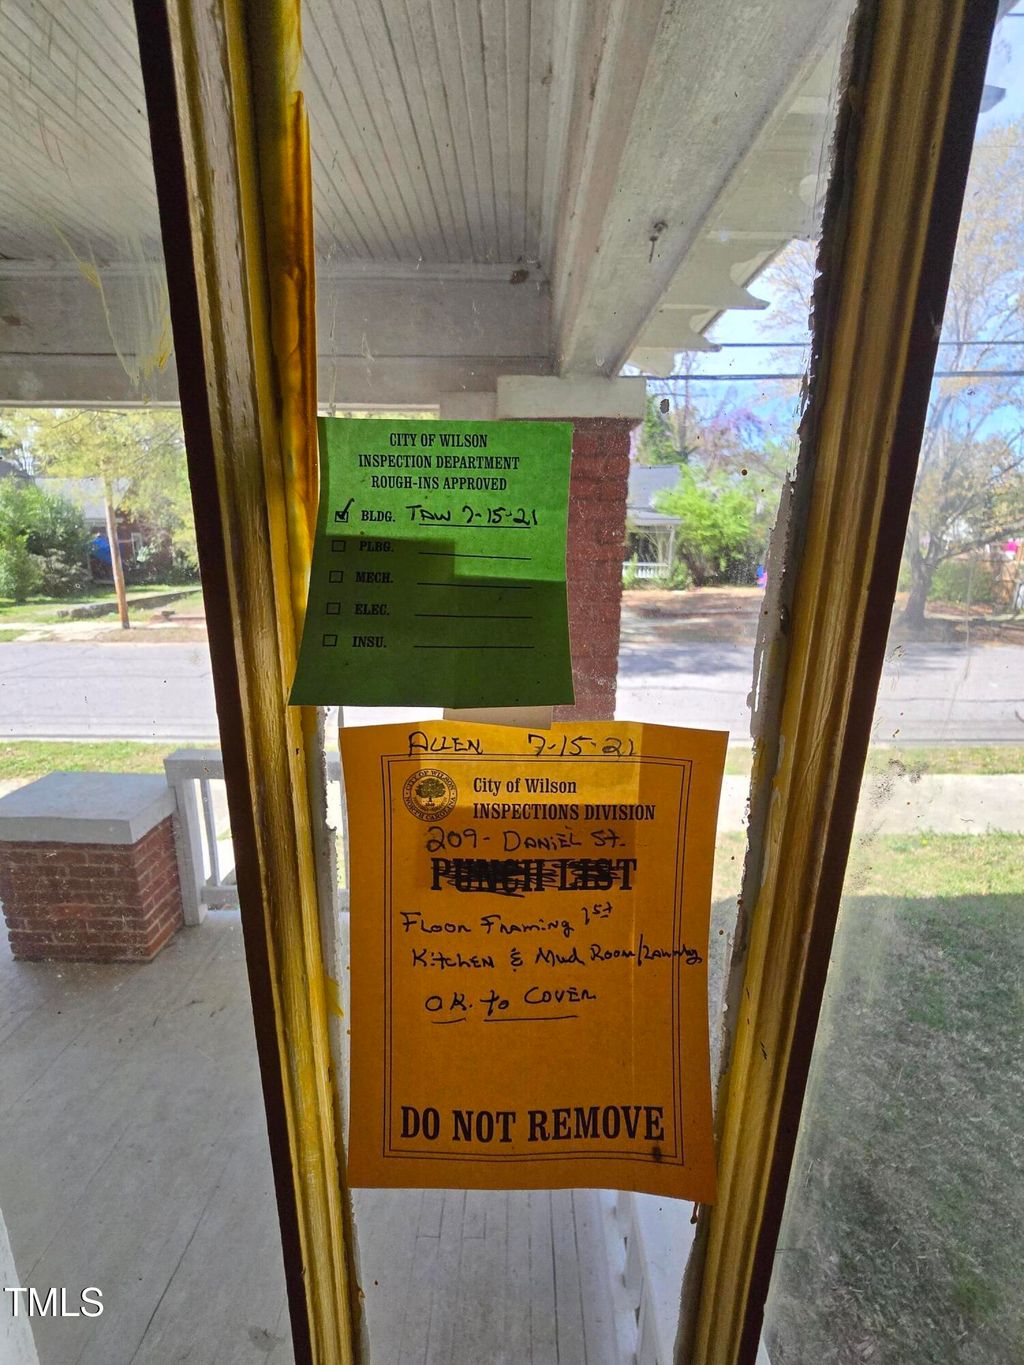 CITY OF WILSON
INSPECTION DEPARTMENT
ROUGH-INS APPROVED
BLDG. TAW 7-15-21
PLBG.
MECH.
ELEC.
INSU.
ALLEN 7-15-21
CITY OF WILSON
NORTH CAROLINA
City of Wilson
INSPECTIONS DIVISION
209- DANIEL St.
PUNCH LIST
FLOOR FRAMING 1st
KitCHEN & Mud Room/LAUNDRY
OK. to COVER
DO NOT REMOVE
TMLS